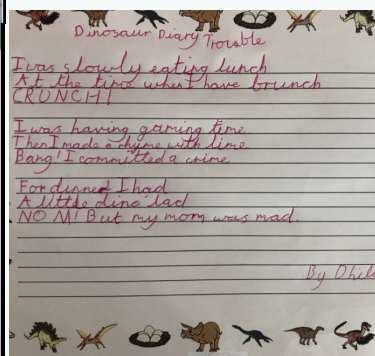 Dinosaur Diary Trouble
I was slowly eating lunch
At the time when I have brunch
CRUNCH!
I was having gaming time.
Then I made a rhyme with lime
Bang! I committed a crime
For dinner I had
A little dino lad
NOM! But my mom was mad.
By